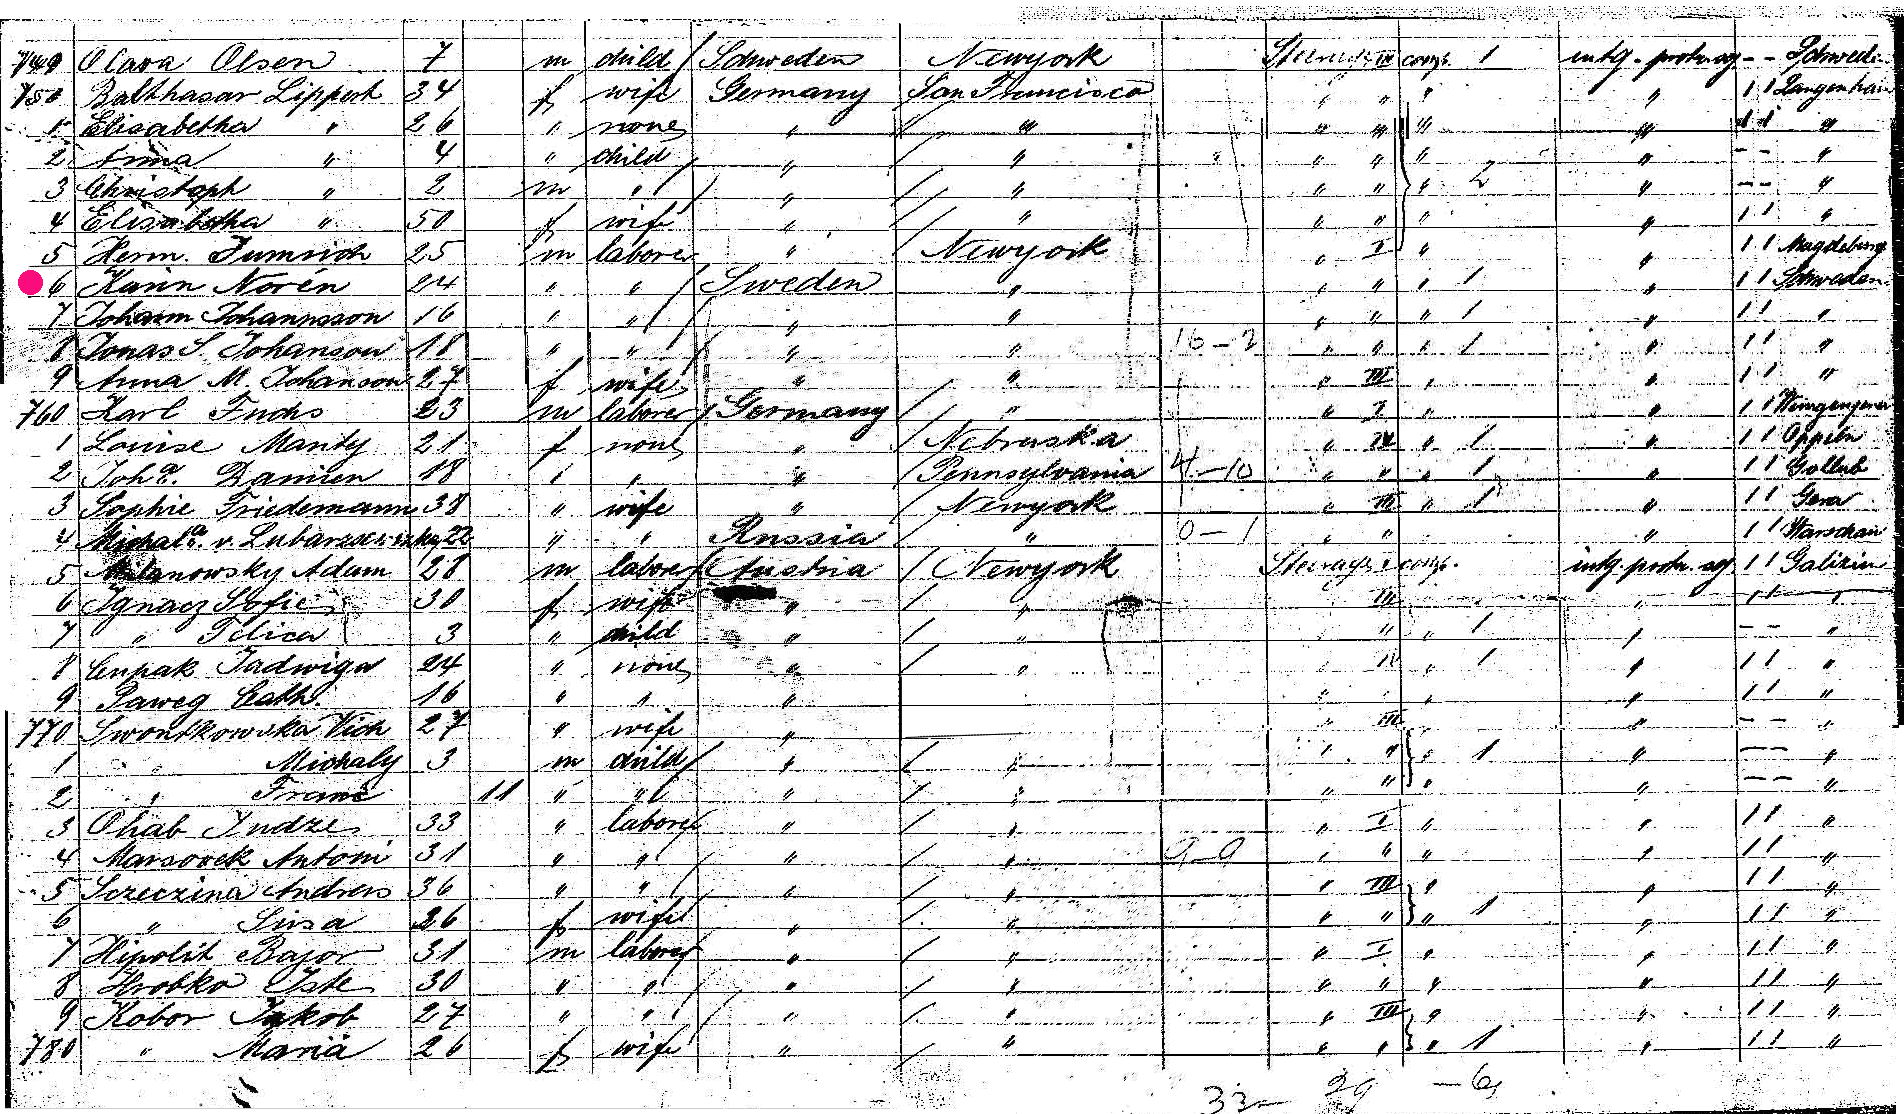 749 Olava Olsen 7 m child / Schweden Newyork Steerage III comp. 1 intg. protr. ag - -
750 Balthasar Lippert 34 f wife Germany San Francisco " " " " ' '
1 Elisabetha " 26 " none " " " " " " ' ' "
2 Anna " 4 " child " / " " " " " " - - "
3 Christoph " 2 m " / " / " " " " 2 " - - "
4 Elisabetha " 50 f wife " / " " " " " ' ' "
5 Herm. 25 m laborer " / Newyork " I " " ' ' Magdeburg
6 Karin Norén 24 " " / Sweden " " " " 1 " ' ' Schweden
7 Johann Johannsson 16 " " / " " " " " 1 " ' ' "
8 Jonas S. Johanson 18 " " / " " 16-2 " " " 1 " ' ' "
9 Anna M. Johanson 27 f wife " " " III " " ' ' "
760 Karl Fuchs 23 m laborer / Germany / " " I " " ' '
1 Louise Manty 21 f none " / Nebraska " IV " 1 " ' ' Oppeln
2 Joh. Damien 18 " " " / Pennsylvania 4-10 " " " 1 " ' ' Gollub
3 Sophie Friedemann 38 " wife " / Newyork " III " 1 " ' ' Gera
4 v. 22 " " Russia " 0-1 " " " ' ' Warschau
5 Milanowsky Adam 28 m laborer / Austria / Newyork Steerage I comp. intg. protr. ag ' ' Galizien
6 Ignacz Sofie 30 f wife " / " III " " ' ' "
7 " Felica 3 " child " / " " " 1 " - - "
8 Cupak Jadwiga 24 " none " / " " IV " 1 " ' ' "
9 Paweg Cath. 16 " " " " " " " ' ' "
770 Swontkowska Vich 27 " wife " " III " - - "
1 " Michaly 3 m child / " / " " " " 1 " - - "
2 " Franc 11 " " " / " " " " - - "
3 Ohab Indze 33 " laborer " / " " I " " ' ' "
4 Marsovek Antoni 31 " " / " / " 9-9 " " " " ' ' "
5 Sczeczina Andreis 36 " " / " / " " III " " ' ' "
6 " Susa 26 f wife " / " " " " 1 " ' ' "
7 Hipolit Bajor 31 m laborer " / " " I " " ' ' "
8 Hrobko Iste 30 " " / " / " " " " " ' ' "
9 Kobor Jakob 27 " " / " / " " III " " ' ' "
780 " Maria 26 f wife " / " " " " 1 " ' ' "
33- 29 -6